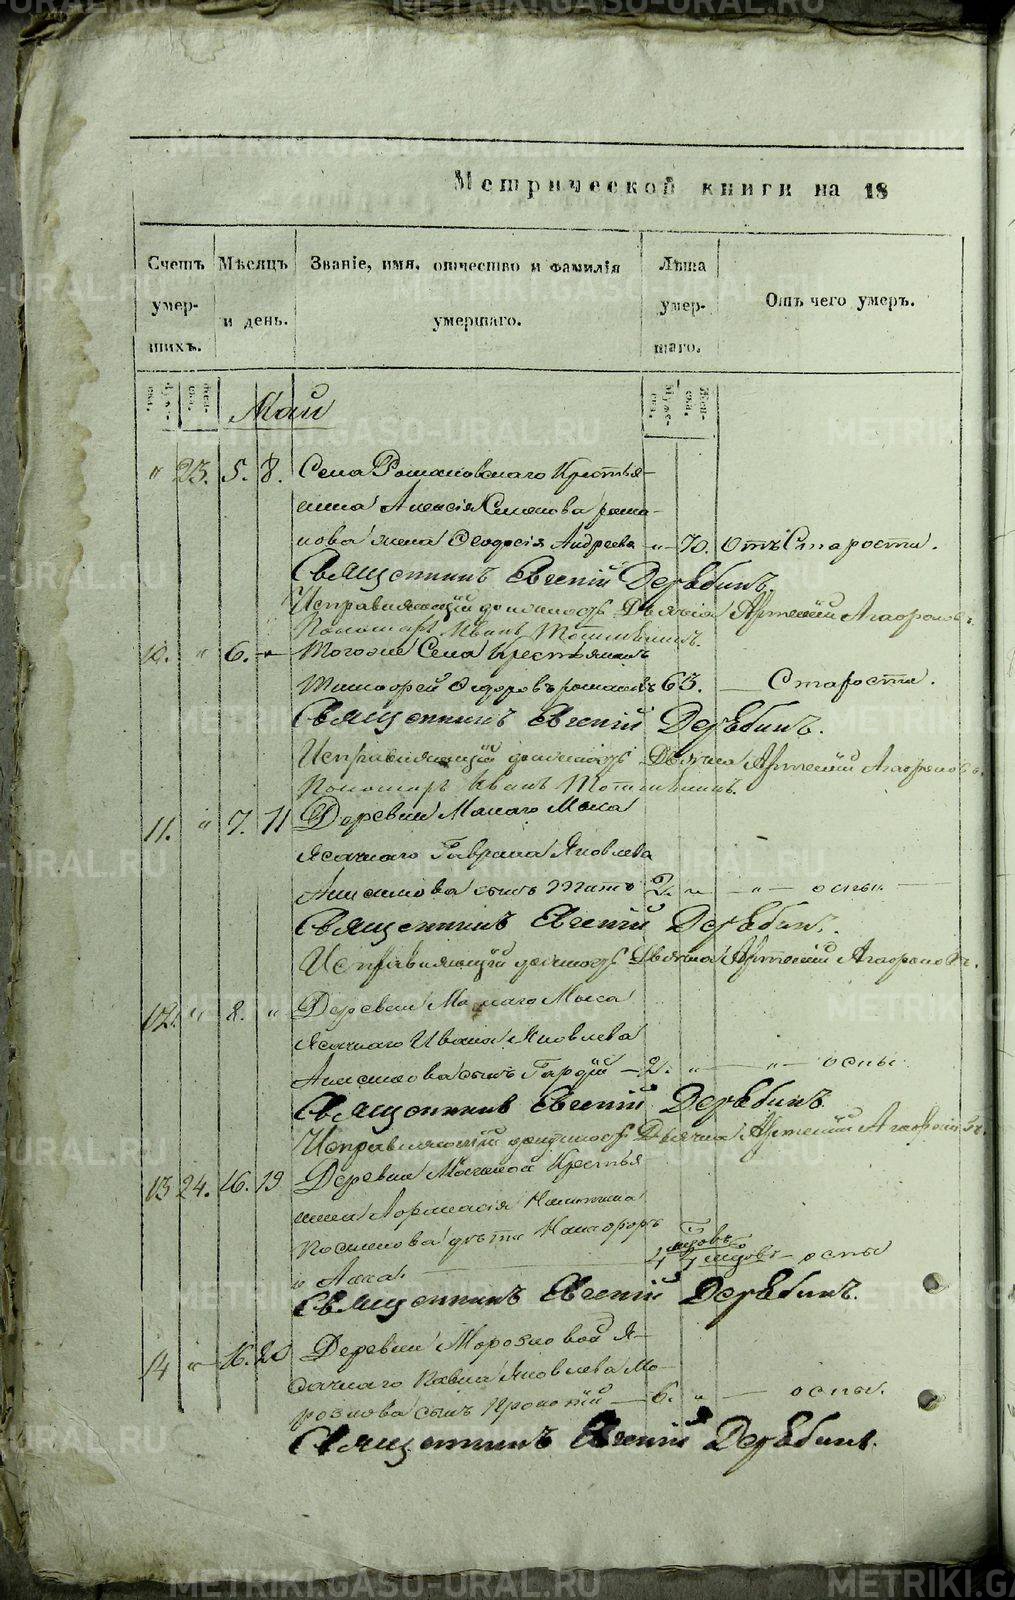 METRIKI.GASO-URAL.RU
Метрической книги на 18
Счетъ умер- шихъ.
Мѣсяцъ и день.
Званіе, имя, отчество и фамилія умершаго.
Лѣта умер- шаго.
Отъ чего умеръ.
Муже- ска. Жен- ска.
Муже- ска. Жен- ска.
Май
" 23. 5. 8. Села Романовскаго Крестья-
нина Алексія Симонова рома-
нова жена Ѳеодосія Андреева " 70. Отъ Старости.
Священникъ Евгеній Дерябинъ
Исправляющій должность Дьячка Артемій Агафоновъ
Пономарь Иванъ
10. " 6. " Тогоже Села Крестьянинъ
Тимофей Ѳедоровъ романовъ 63. Старости.
Священникъ Евгеній Дерябинъ.
Исправляющій должность Дьячка Артемій Агафоновъ.
Пономарь Иванъ
11. " 7. 11 Деревни Малаго Мыса
Ясачнаго Гаврила Яковлева
Анисимова сынъ Титъ 2. " — " — оспы
Священникъ Евгеній Дерябинъ.
Исправляющій должность Дьячка Артемій Агафоновъ.
12. " 8. " Деревни Малаго Мыса
Ясачнаго Ивана Яковлева
Анисимова сынъ Гордій — 2. " — " — оспы
Священникъ Евгеній Дерябинъ
Исправляющій должность Дьячка Артемій Агафоновъ.
13 24. 16. 19 Деревни Крестья
нина Афанасія Никитина
дѣти Никифоръ
и Анна. 4 мцовъ 7 мцовъ — оспы
Священникъ Евгеній Дерябинъ.
14 " 16. 20 Деревни Морозковой Я-
сачнаго Павла Яковлева Мо-
розкова сынъ Прокопій — 6. " — оспы.
Священникъ Евгеній Дерябинъ.